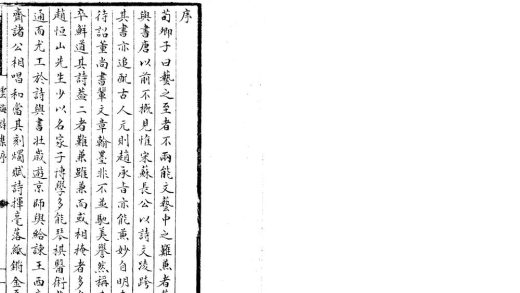 序
荀卿子曰藝之至者不兩能文藝中之難兼者
與書唐以前不概見惟宋蘇長公以詩文陵跨
其書亦追配古人元則趙承旨亦能兼妙自明
待詔董尚書輩文章翰墨非不並馳美譽然稱
卒鮮道其詩蓋二者難兼雖兼而或相掩者多
趙恒山先生少以名家子博學多能琴棋醫術
通而尤工於詩與書壯歲遊京師與給諫王西
齋諸公相唱和當其刻燭賦詩揮毫落紙鏘金
集序